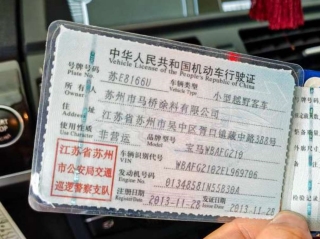 中华人民共和国机动车行驶证
Vehicle License of the People's Republic of China
号牌号码 苏E8166U 车辆类型 小型越野客车
Plate No. Vehicle Type
所有人 苏州市马桥涂料有限公司
Owner
住址 江苏省苏州市吴中区胥口镇藏中路388号
Address
使用性质 非营运 品牌型号 宝马WBAFG210
Use Character Model
江苏省苏州
市公安局交通
巡逻警察支队
车辆识别代号 WBAFG2102FL969706
VIN
发动机号码 01348581N55B30A
Engine No.
注册日期 2013-11-28 发证日期 2013-11-28
Register Date Issue Date